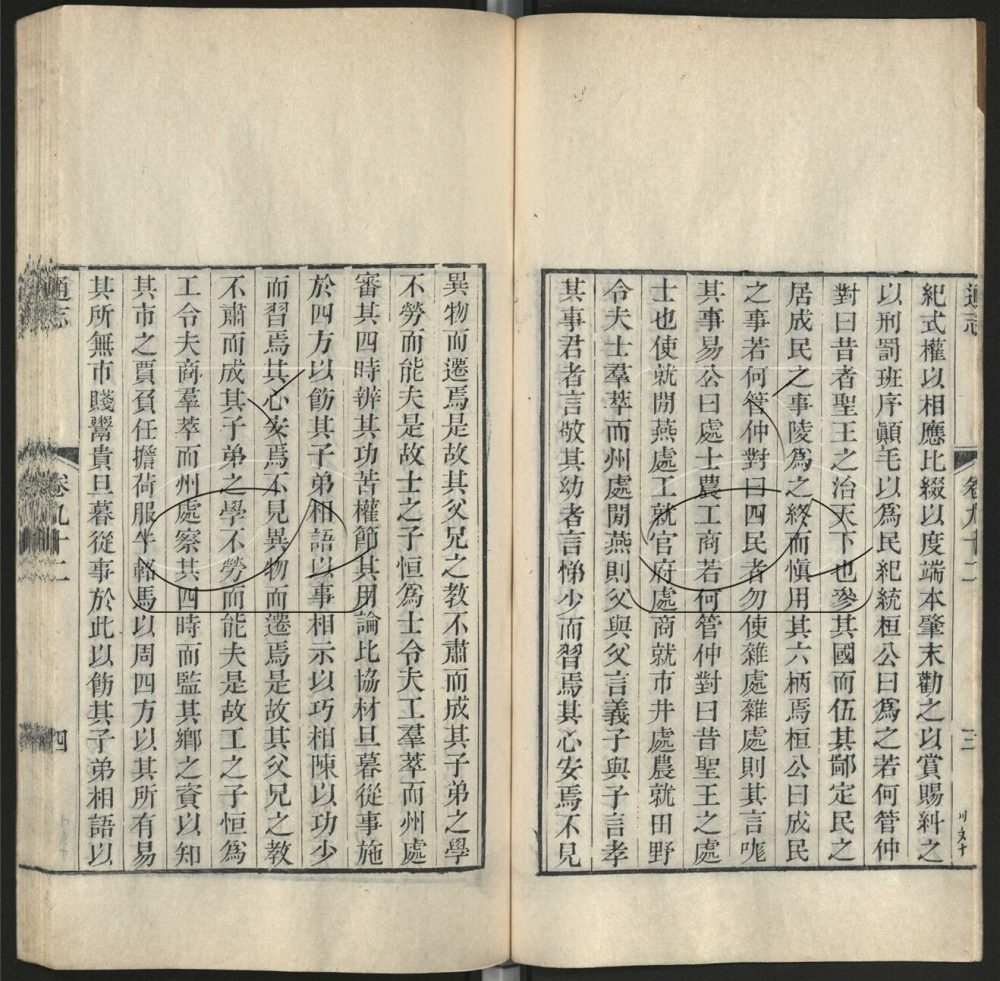 通志
卷九十二
三
紀式權以相應比綴以度端本肇末勸之以賞賜糾之
以刑罰班序顚毛以為民紀統桓公曰為之若何管仲
對曰昔者聖王之治天下也參其國而伍其鄙定民之
居成民之事陵為之終而慎用其六柄焉桓公曰成民
之事若何管仲對曰四民者勿使雜處雜處則其言哤
其事易公曰處士農工商若何管仲對曰昔聖王之處
士也使就閒燕處工就官府處商就市井處農就田野
令夫士羣萃而州處閒燕則父與父言義子與子言孝
其事君者言敬其幼者言悌少而習焉其心安焉不見
異物而遷焉是故其父兄之教不肅而成其子弟之學
不勞而能夫是故士之子恒為士令夫工羣萃而州處
審其四時辨其功苦權節其用論比協材旦暮從事施
於四方以飭其子弟相語以事相示以巧相陳以功少
而習焉其心安焉不見異物而遷焉是故其父兄之教
不肅而成其子弟之學不勞而能夫是故工之子恒為
工令夫商羣萃而州處察其四時而監其鄉之資以知
其市之賈負任擔荷服牛軺馬以周四方以其所有易
其所無市賤鬻貴旦暮從事於此以飭其子弟相語以
通志
卷九十二
四